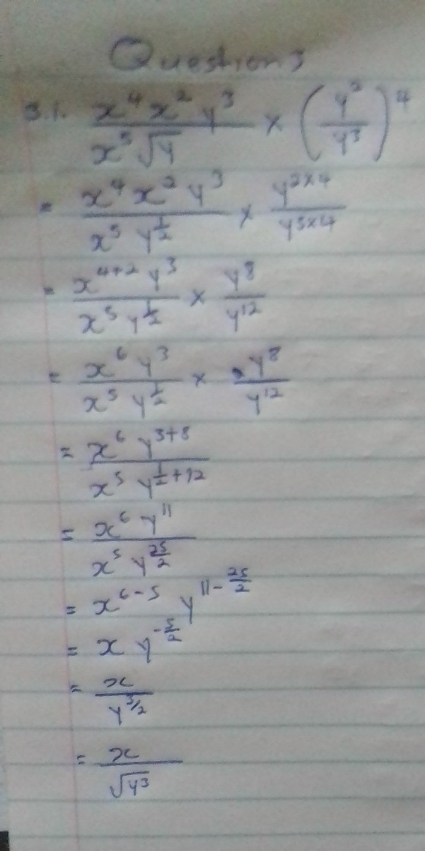 Question 3
3.1. \frac{x^4 x^2 y^3}{x^5 \sqrt{y}} × \left(\frac{y^2}{y^3}\right)^4
= \frac{x^4 x^2 y^3}{x^5 y^{\frac{1}{2}}} × \frac{y^{2×4}}{y^{3×4}}
= \frac{x^{4+2} y^3}{x^5 y^{\frac{1}{2}}} × \frac{y^8}{y^{12}}
= \frac{x^6 y^3}{x^5 y^{\frac{1}{2}}} × \frac{y^8}{y^{12}}
= \frac{x^6 y^{3+8}}{x^5 y^{\frac{1}{2}+12}}
= \frac{x^6 y^{11}}{x^5 y^{\frac{25}{2}}}
= x^{6-5} y^{11-\frac{25}{2}}
= x y^{-\frac{3}{2}}
= \frac{x}{y^{3/2}}
= \frac{x}{\sqrt{y^3}}